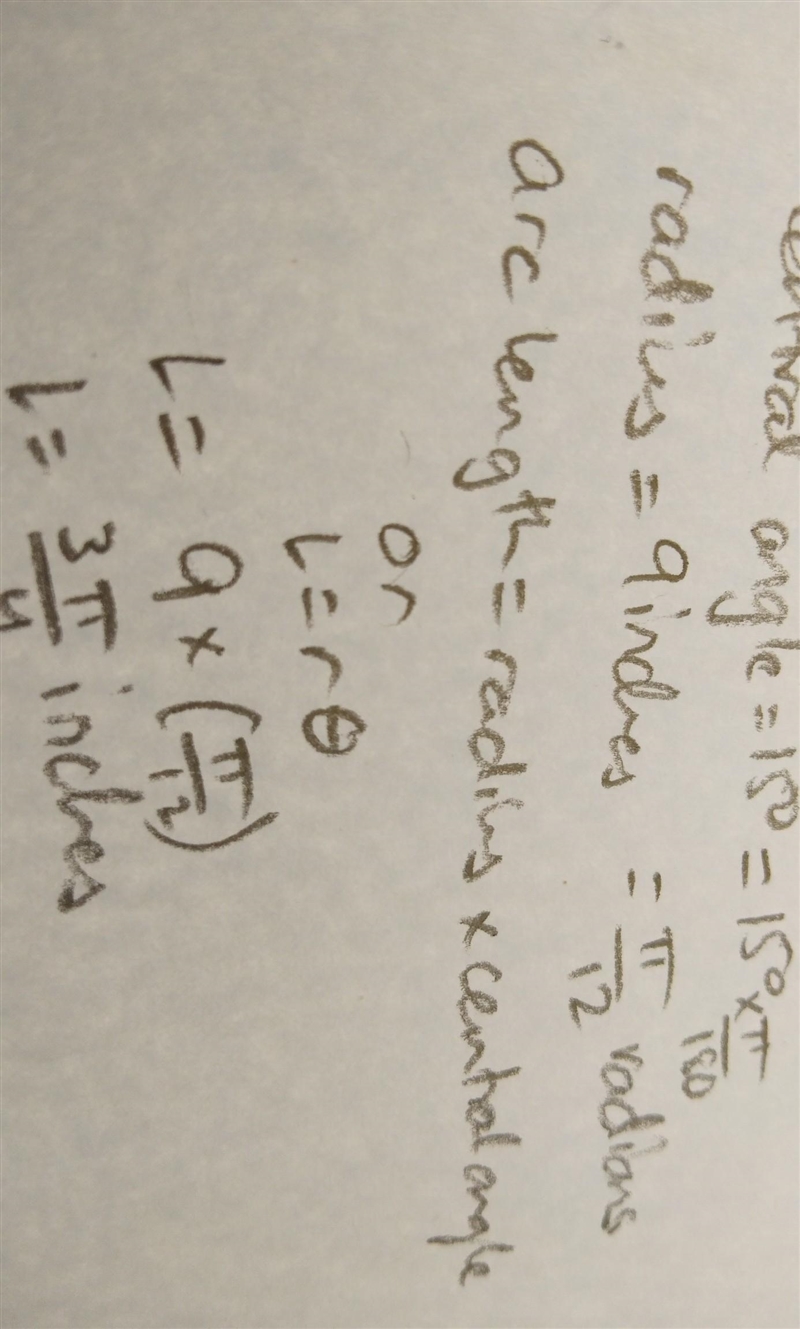 central angle = 15° = 15° × π/180
radius = 9 inches = π/12 radians
arc length = radius × cental angle
or
L = rθ
L = 9 × (π/12)
L = 3π/4 inches